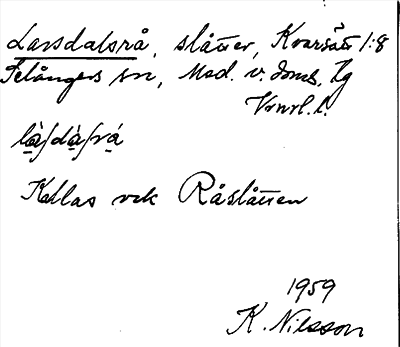 Larsdalsrå, slåtter, Kvarsätt 1:8
Selångers sn, Med. v. doms. Hg
Vrnrl. l.
là/dà/rá
Kallas ock Råslåtten
1959
K. Nilsson